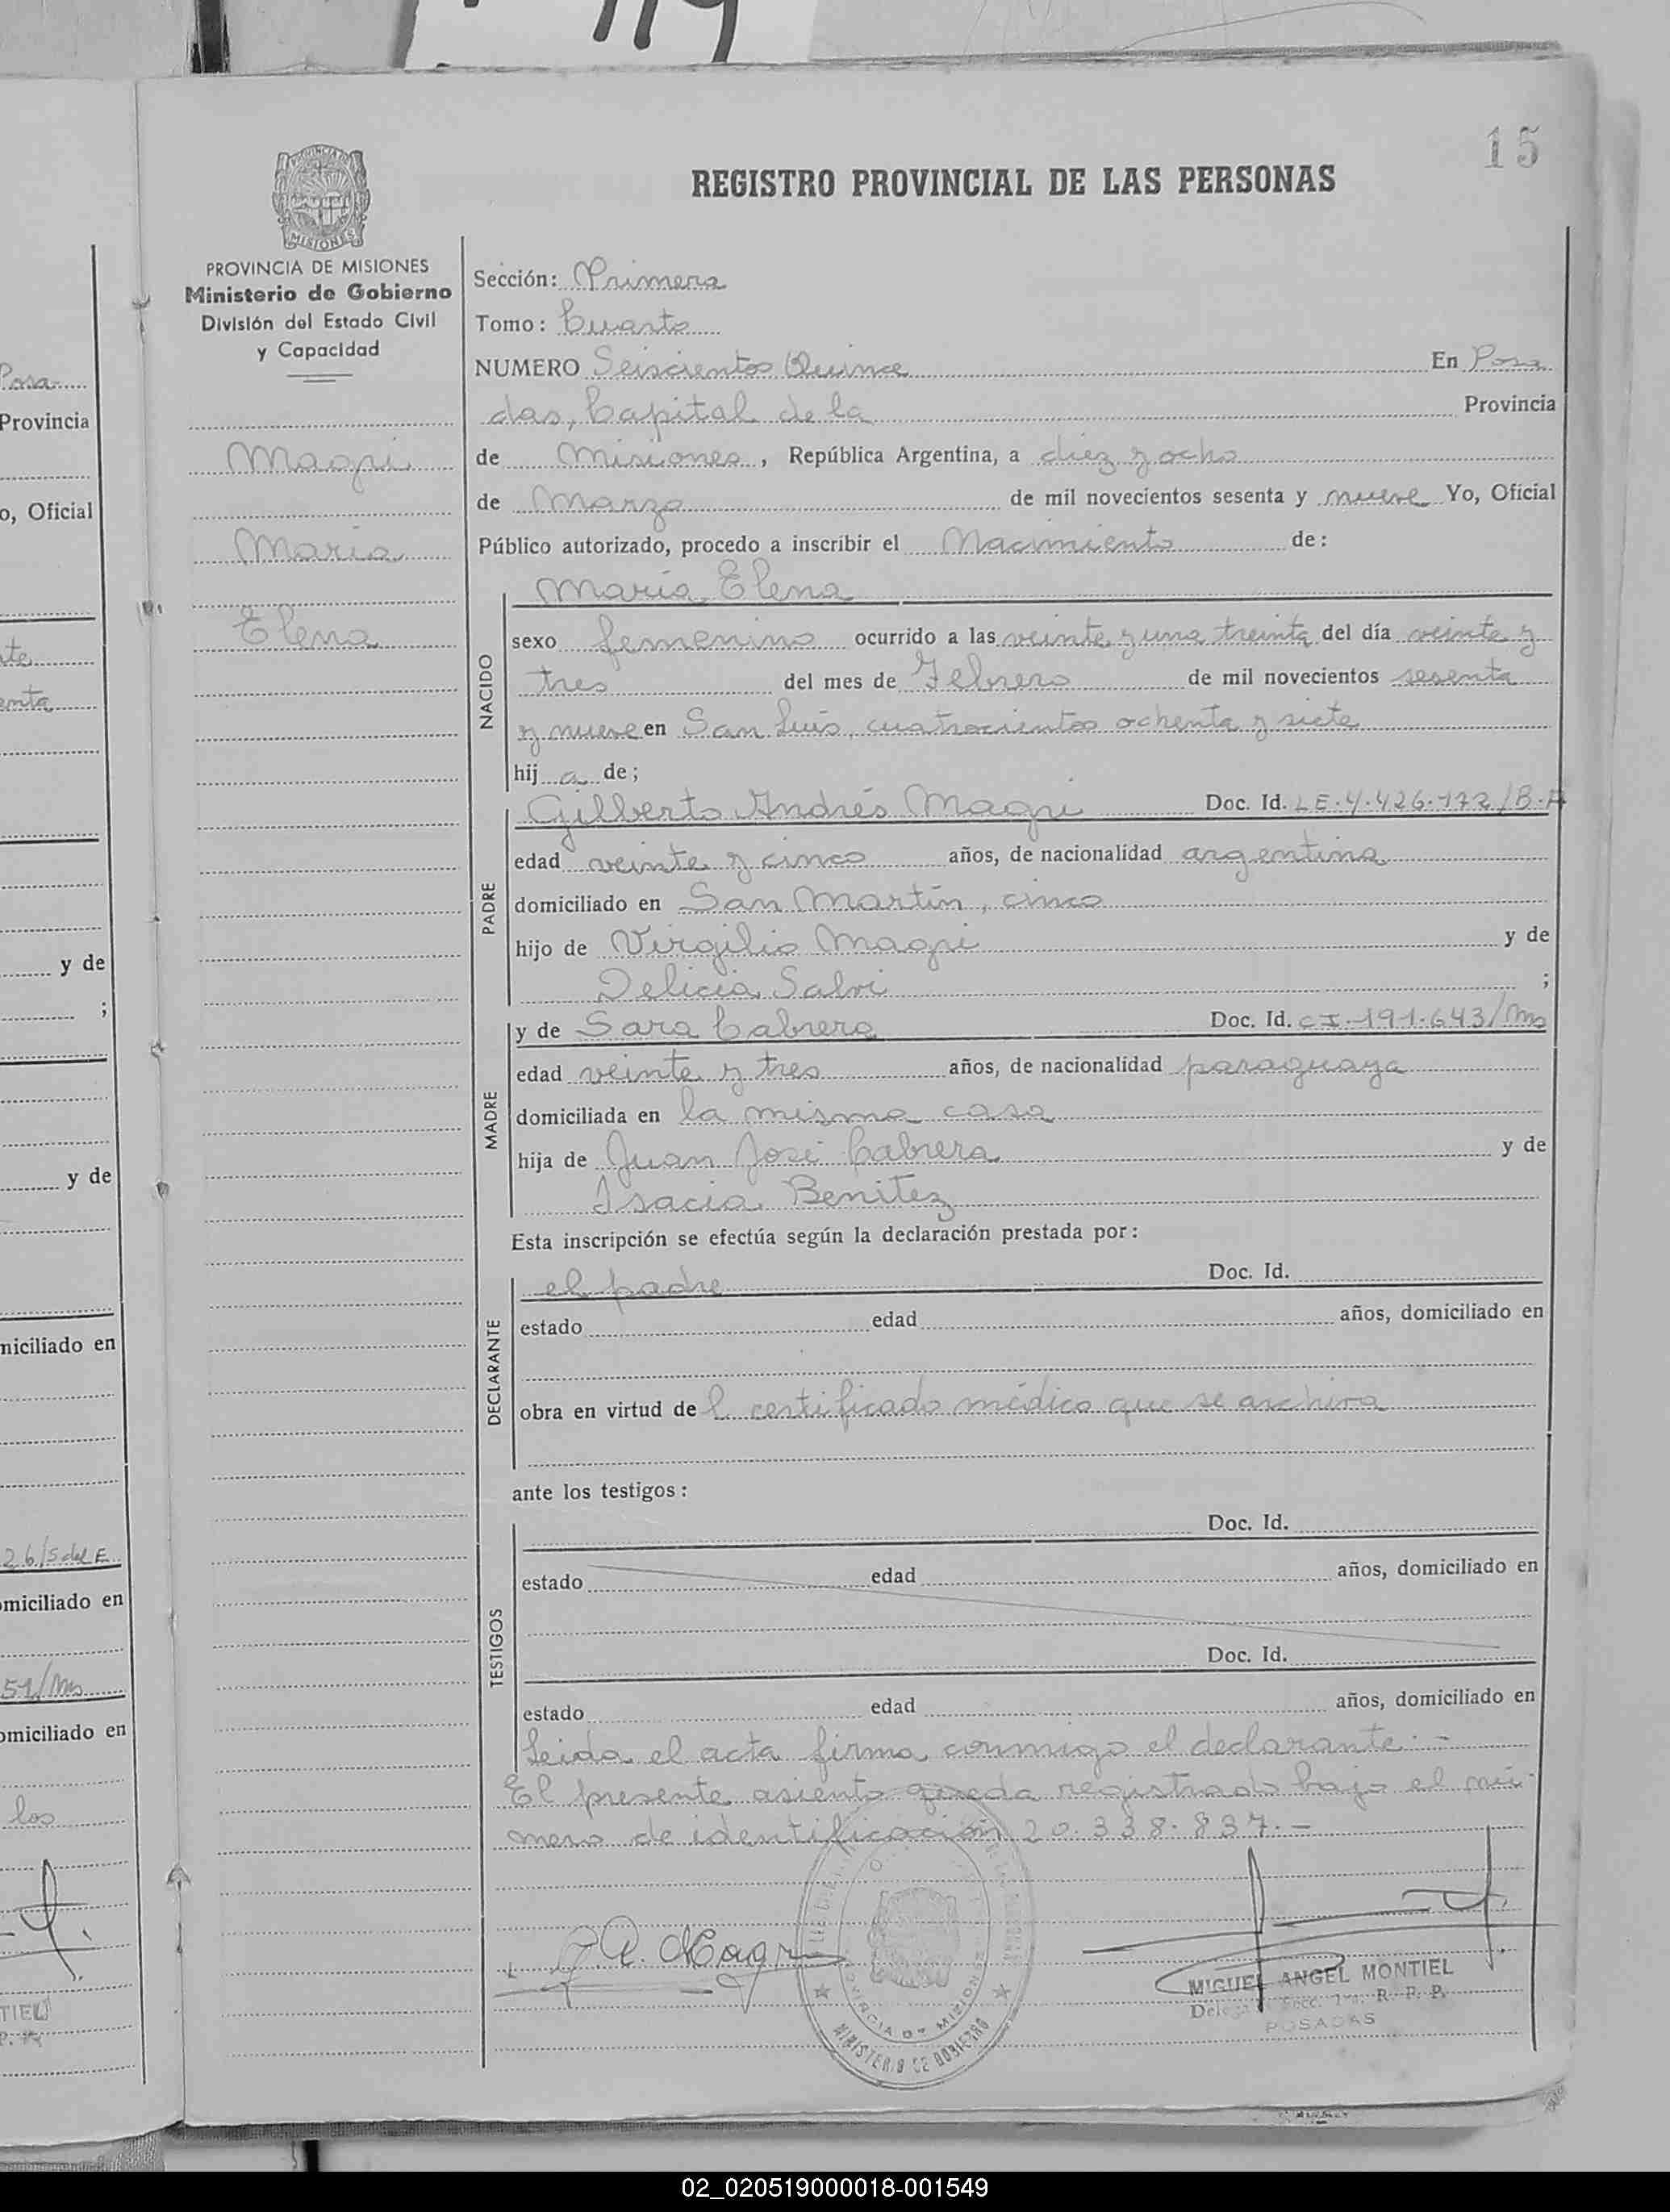 15
REGISTRO PROVINCIAL DE LAS PERSONAS
MISIONES
PROVINCIA DE MISIONES
Ministerio de Gobierno
División del Estado Civil
y Capacidad
Magri
Maria
Elena
Sección: Primera
Tomo: Cuarto
NUMERO Seiscientos Quince En Posa
das, Capital de la Provincia
de Misiones, República Argentina, a diez y ocho
de Marzo de mil novecientos sesenta y nueve Yo, Oficial
Público autorizado, procedo a inscribir el Nacimiento de:
María Elena
NACIDO
sexo femenino ocurrido a las veinte y una treinta del día veinte y
tres del mes de Febrero de mil novecientos sesenta
y nueve en San Luis, cuatrocientos ochenta y siete
hij a de;
PADRE
Gilberto Andrés Magri Doc. Id. LE.4.426.172/B.A
edad veinte y cinco años, de nacionalidad argentina
domiciliado en San Martín, cinco
hijo de Virgilio Magri y de
Delicia Salvi ;
MADRE
y de Sara Cabrera Doc. Id. CI-191.643/Mns
edad veinte y tres años, de nacionalidad paraguaya
domiciliada en la misma casa
hija de Juan José Cabrera y de
Isacia Benitez
Esta inscripción se efectúa según la declaración prestada por:
DECLARANTE
el padre Doc. Id.
estado edad años, domiciliado en
obra en virtud de l certificado médico que se archiva
ante los testigos:
TESTIGOS
Doc. Id.
estado edad años, domiciliado en
Doc. Id.
estado edad años, domiciliado en
Leida el acta firma conmigo el declarante.-
El presente asiento queda registrado bajo el nú-
mero de identificación 20.338.837.-
G.A. Magri
MINISTERIO DE GOBIERNO
MIGUEL ANGEL MONTIEL
Secc. 1ra. R. P. P.
POSADAS
Posa
Provincia
o, Oficial
te
enta
y de
;
y de
miciliado en
26/5 del E
omiciliado en
51/Mns
omiciliado en
los
TIEL
02_020519000018-001549